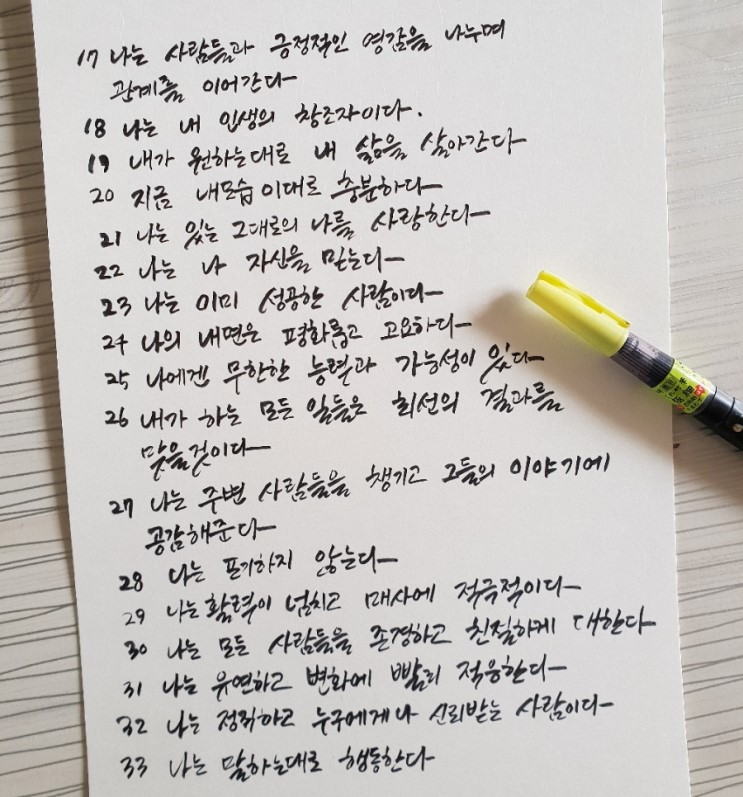 17 나는 사람들과 긍정적인 영감을 나누며
관계를 이어간다
18 나는 내 인생의 창조자이다.
19 내가 원하는대로 내 삶을 살아간다
20 지금 내모습 이대로 충분하다
21 나는 있는 그대로의 나를 사랑한다
22 나는 나 자신을 믿는다
23 나는 이미 성공한 사람이다
24 나의 내면은 평화롭고 고요하다
25 나에겐 무한한 능력과 가능성이 있다
26 내가 하는 모든 일들은 최선의 결과를
맞을것이다
27 나는 주변 사람들을 챙기고 그들의 이야기에
공감해준다
28 나는 포기하지 않는다
29 나는 활력이 넘치고 매사에 적극적이다
30 나는 모든 사람들을 존경하고 친절하게 대한다
31 나는 유연하고 변화에 빨리 적응한다
32 나는 정직하고 누구에게나 신뢰받는 사람이다
33 나는 말하는대로 행동한다